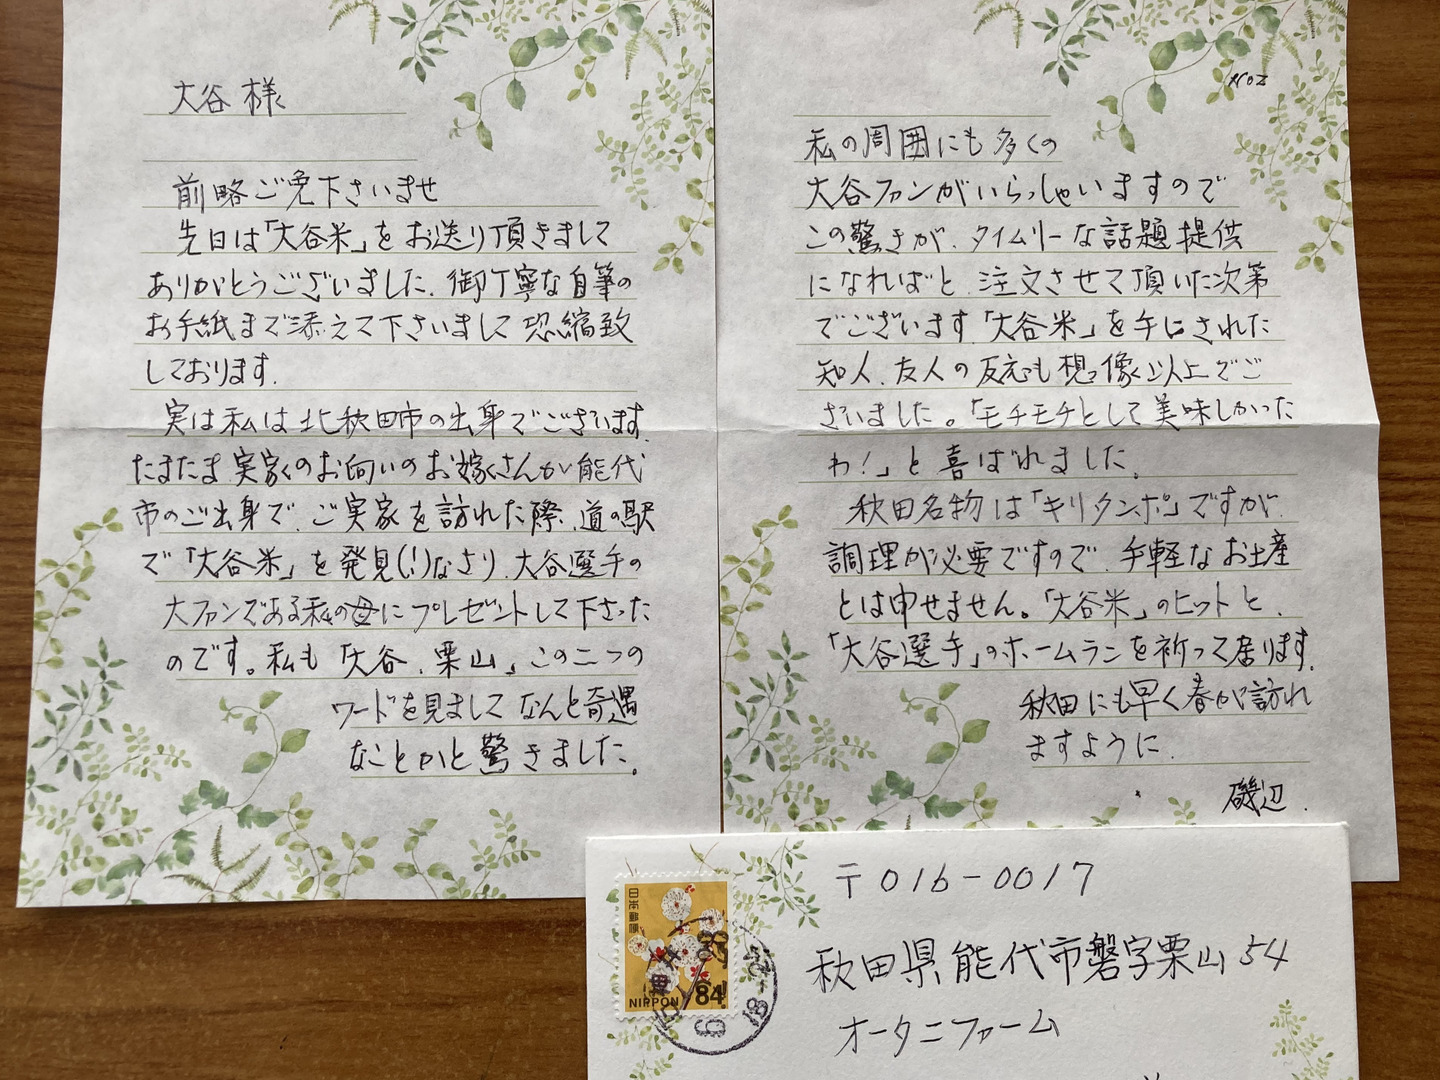 大谷様
前略ご免下さいませ
先日は「大谷米」をお送り頂きまして
ありがとうございました。御丁寧な自筆の
お手紙まで添えて下さいまして恐縮致
しております。
実は私は北秋田市の出身でございます。
たまたま実家のお向いのお嫁さんが能代
市のご出身で、ご実家を訪れた際、道の駅
で「大谷米」を発見(!)なさり、大谷選手の
大ファンである私の母にプレゼントして下さった
のです。私も「大谷、栗山」この二つの
ワードを見まして なんと奇遇
なことかと驚きました。
No2
私の周囲にも多くの
大谷ファンがいらっしゃいますので
この驚きが、タイムリーな話題提供
になればと、注文させて頂いた次第
でございます。「大谷米」を手にされた
知人、友人の反応も想像以上でご
ざいました。「モチモチとして美味しかった
わ!」と喜ばれました。
秋田名物は「キリタンポ」ですが、
調理が必要ですので、手軽なお土産
とは申せません。「大谷米」のヒットと、
「大谷選手」のホームランを祈って居ります。
秋田にも早く春が訪れ
ますように。
磯辺.
日本郵便
NIPPON 84
〒016-0017
秋田県能代市磐字栗山54
オータニファーム